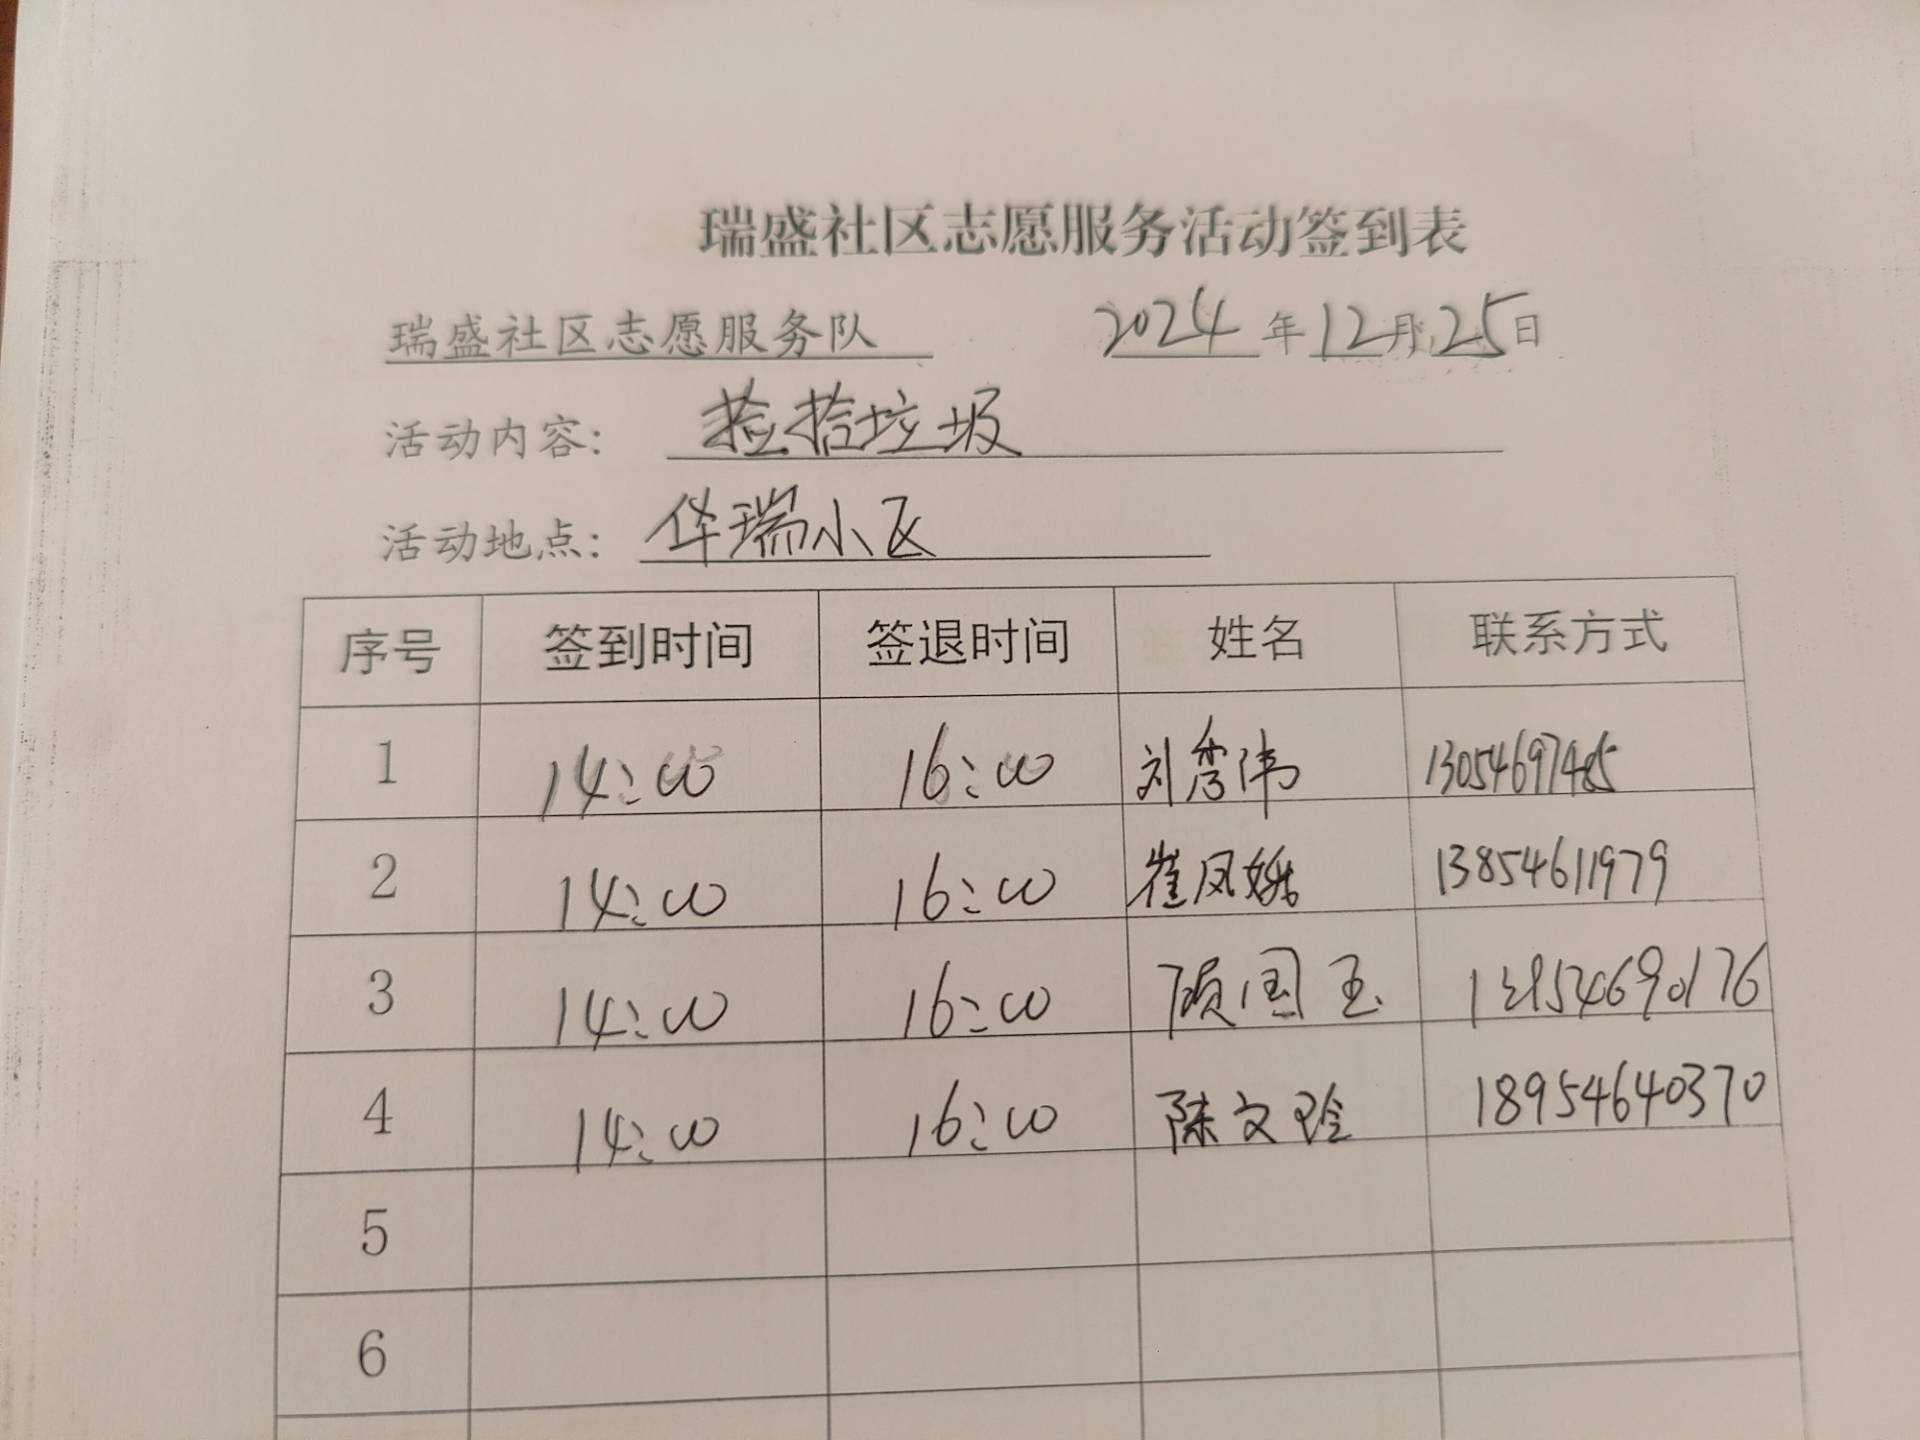 瑞盛社区志愿服务活动签到表
瑞盛社区志愿服务队 2024年12月25日
活动内容: 捡拾垃圾
活动地点: 华瑞小区
序号 签到时间 签退时间 姓名 联系方式
1 14:00 16:00 刘秀伟
2 14:00 16:00 崔凤娥 13854611979
3 14:00 16:00 国玉
4 14:00 16:00 陈文玲 18954640370
5
6